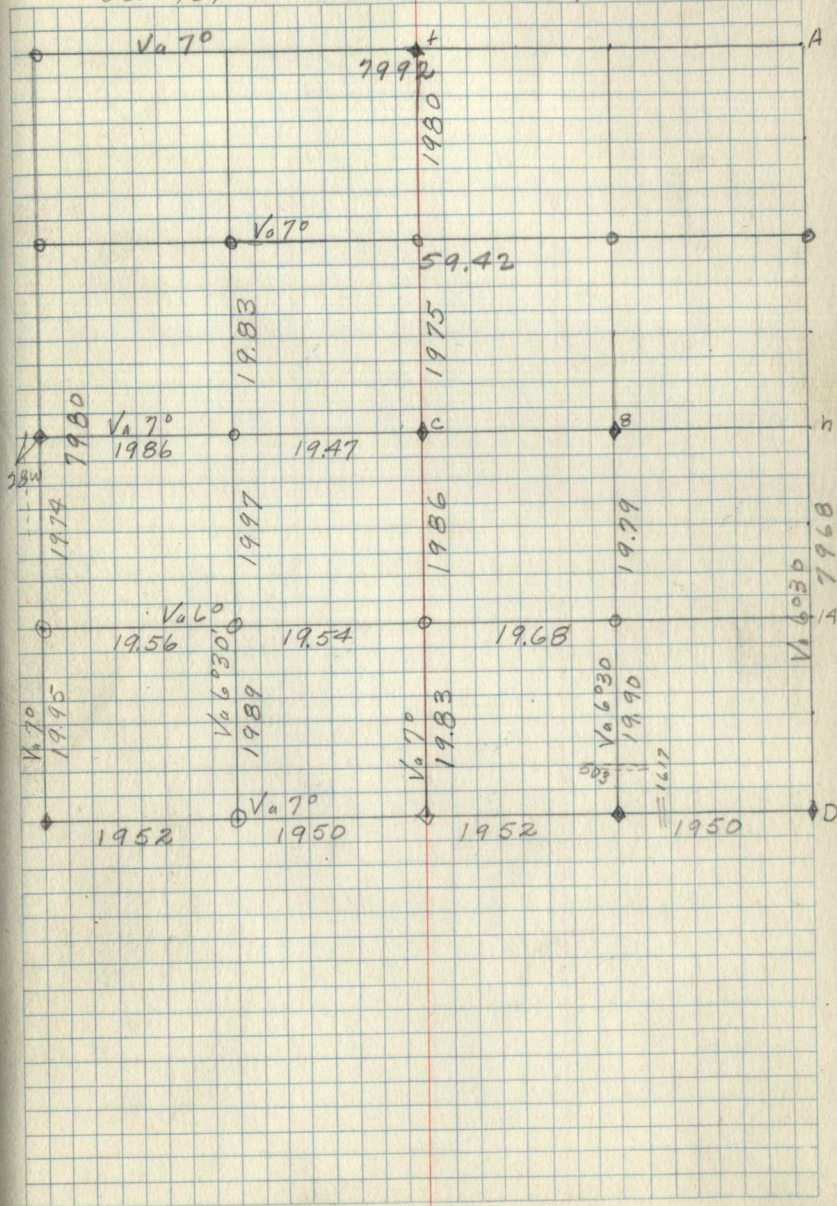 Va 7° A
7992
1980
Va 7°
59.42
19.83
1975
7980
Va 7° C B h
1986 19.47
38W
1974
1997
1986
19.79
7968
Va 6°30
Va 6° 14
19.56 19.54 19.68
Va 7°
19.95
Va 6°30'
1989
Va 7°
19.83
Va 6°30
19.90
503
1617
Va 7° D
1952 1950 1952 1950